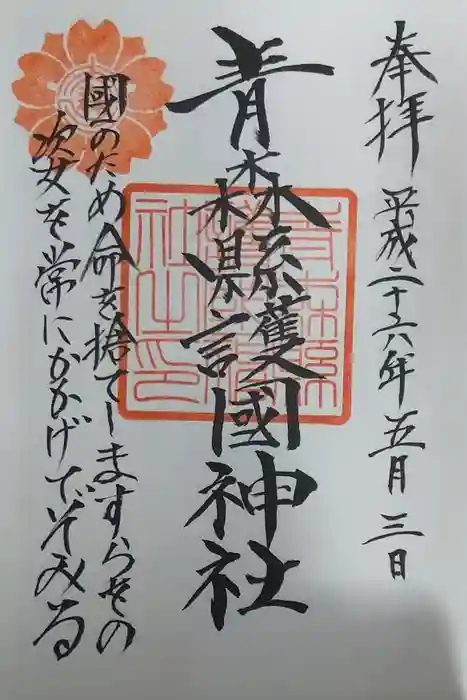 奉拝
平成二十六年五月三日
青森縣護國神社
國のため命を捨てしますらをの
次女を常にかかげてぞみる